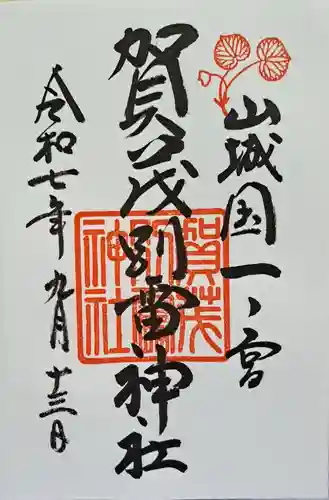 山城国一ノ宮
賀茂別雷神社
令和七年九月十三日
賀茂別雷神社